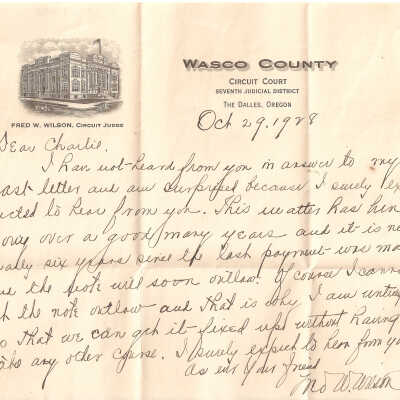 WASCO COUNTY
CIRCUIT COURT
SEVENTH JUDICIAL DISTRICT
THE DALLES, OREGON
FRED W. WILSON, CIRCUIT JUDGE
Oct 29, 1928
Dear Charlie,
I have not heard from you in answer to my
last letter and am surprised because I surely ex
pected to hear from you. This matter has hung
over a good many years and it is ne
arly six years since the last payment was ma
the note will soon outlaw. Of course I canno
the note outlaw and that is why I am writing
so that we can get it fixed up without having
take any other course. I surely expect to hear from you
as ever your friend
Fred W. Wilson